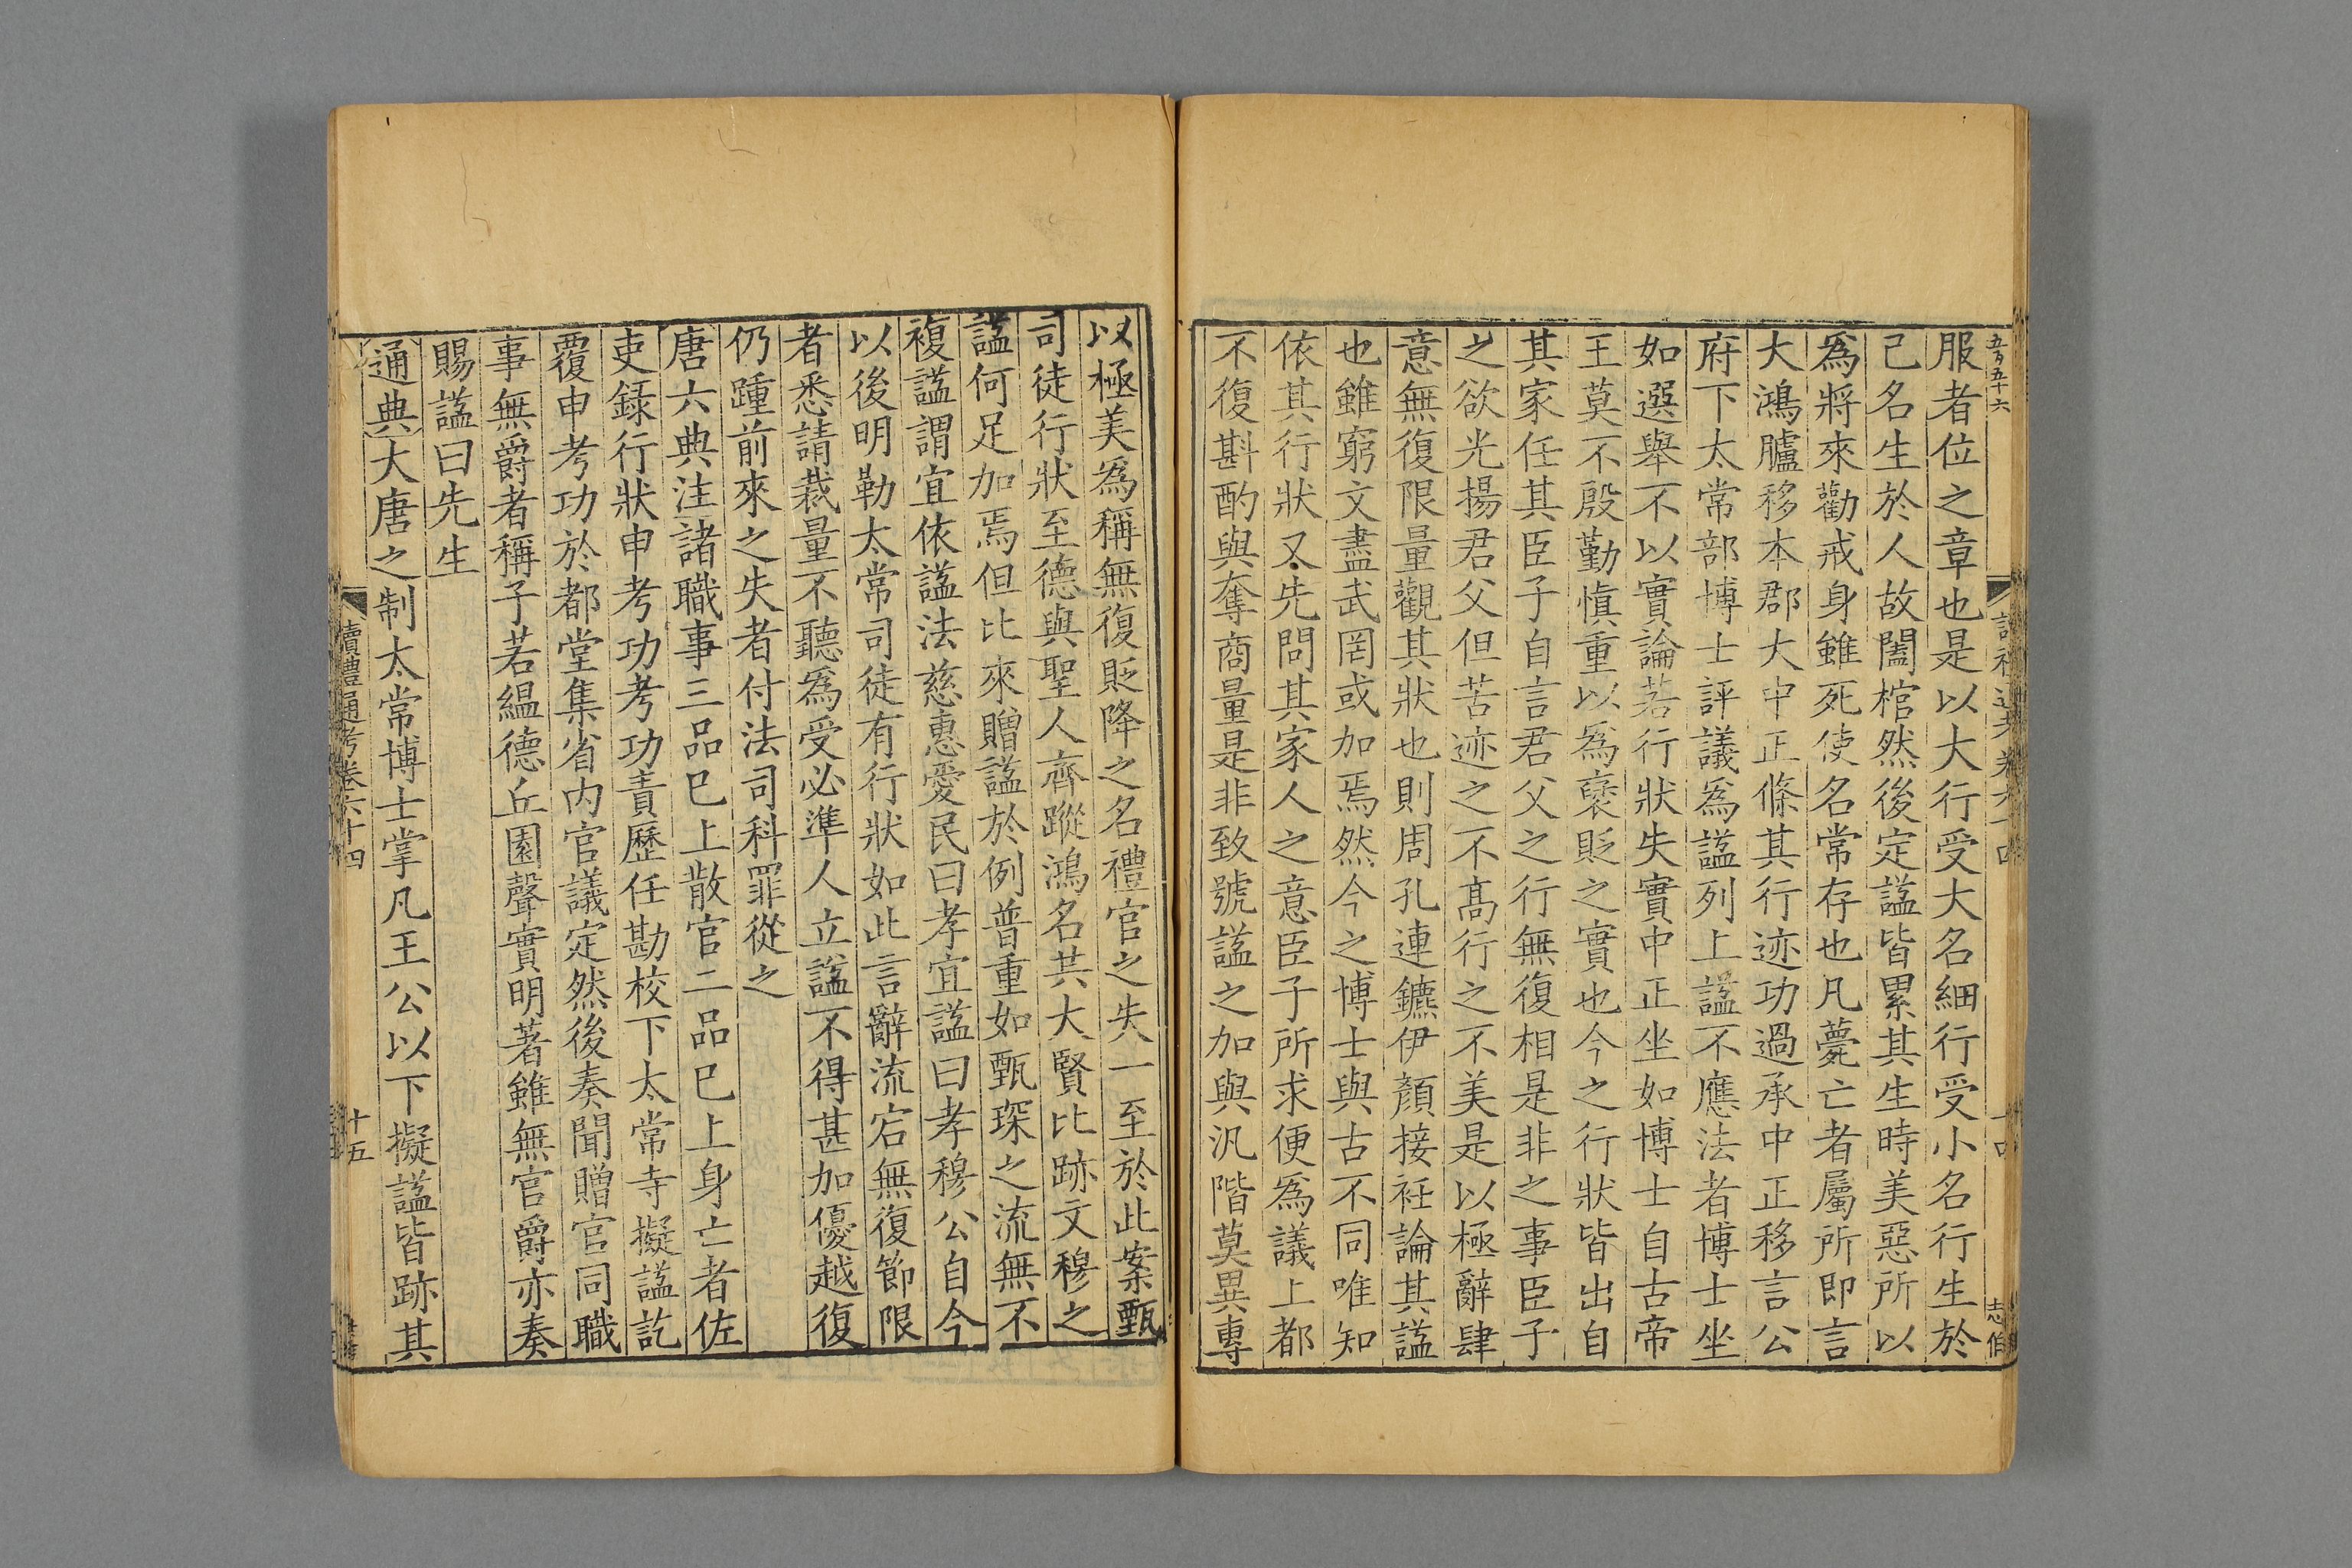 五百五十六
服者位之章也是以大行受大名細行受小名行生於
己名生於人故闔棺然後定諡皆累其生時美惡所以
爲將來勸戒身雖死使名常存也凡薨亡者屬所即言
大鴻臚移本郡大中正條其行迹功過承中正移言公
府下太常部博士評議爲諡列上諡不應法者博士坐
如選舉不以實論若行狀失實中正坐如博士自古帝
王莫不殷勤慎重以爲襃貶之實也今之行狀皆出自
其家任其臣子自言君父之行無復相是非之事臣子
之欲光揚君父但苦迹之不高行之不美是以極辭肆
意無復限量觀其狀也則周孔連鑣伊顏接衽論其諡
也雖窮文盡武罔或加焉然今之博士與古不同唯知
依其行狀又先問其家人之意臣子所求便爲議上都
不復斟酌與奪商量是非致號諡之加與汎階莫異專
以極美爲稱無復貶降之名禮官之失一至於此案甄
司徒行狀至德與聖人齊蹤鴻名共大賢比跡文穆之
諡何足加焉但比來贈諡於例普重如甄琛之流無不
複諡謂宜依諡法慈惠愛民曰孝宜諡曰孝穆公自今
以後明勒太常司徒有行狀如此言辭流宕無復節限
者悉請裁量不聽爲受必準人立諡不得甚加優越復
仍踵前來之失者付法司科罪從之
唐六典注諸職事三品巳上散官二品巳上身亡者佐
吏録行狀申考功考功責歷任勘校下太常寺擬諡訖
覆申考功於都堂集省内官議定然後奏聞贈官同職
事無爵者稱子若縕德丘園聲實明著雖無官爵亦奏
賜諡曰先生
通典大唐之制太常博士掌凡王公以下擬諡皆跡其
讀禮通考卷六十四
十五